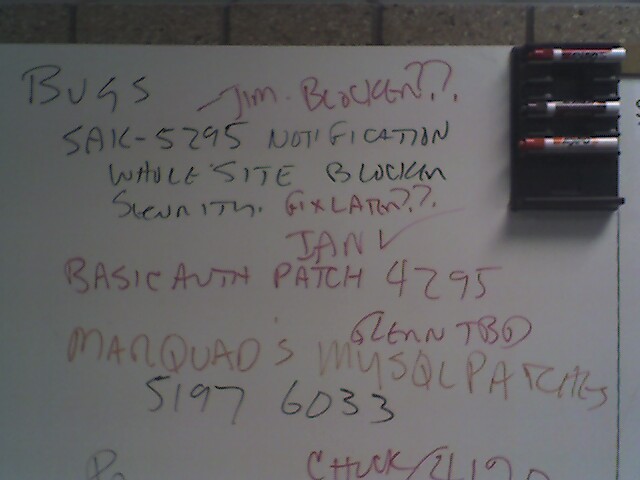 BUGS - JIM. BLOCKER??
SAK-5295 NOTIFICATION
WHOLE SITE BLOCKER
SECURITY. FIX LATER??
IAN ✓
BASIC AUTH PATCH 4295
GLENN TBD
MARQUAD'S MYSQL PATCHES
5197 6033
CHUCK